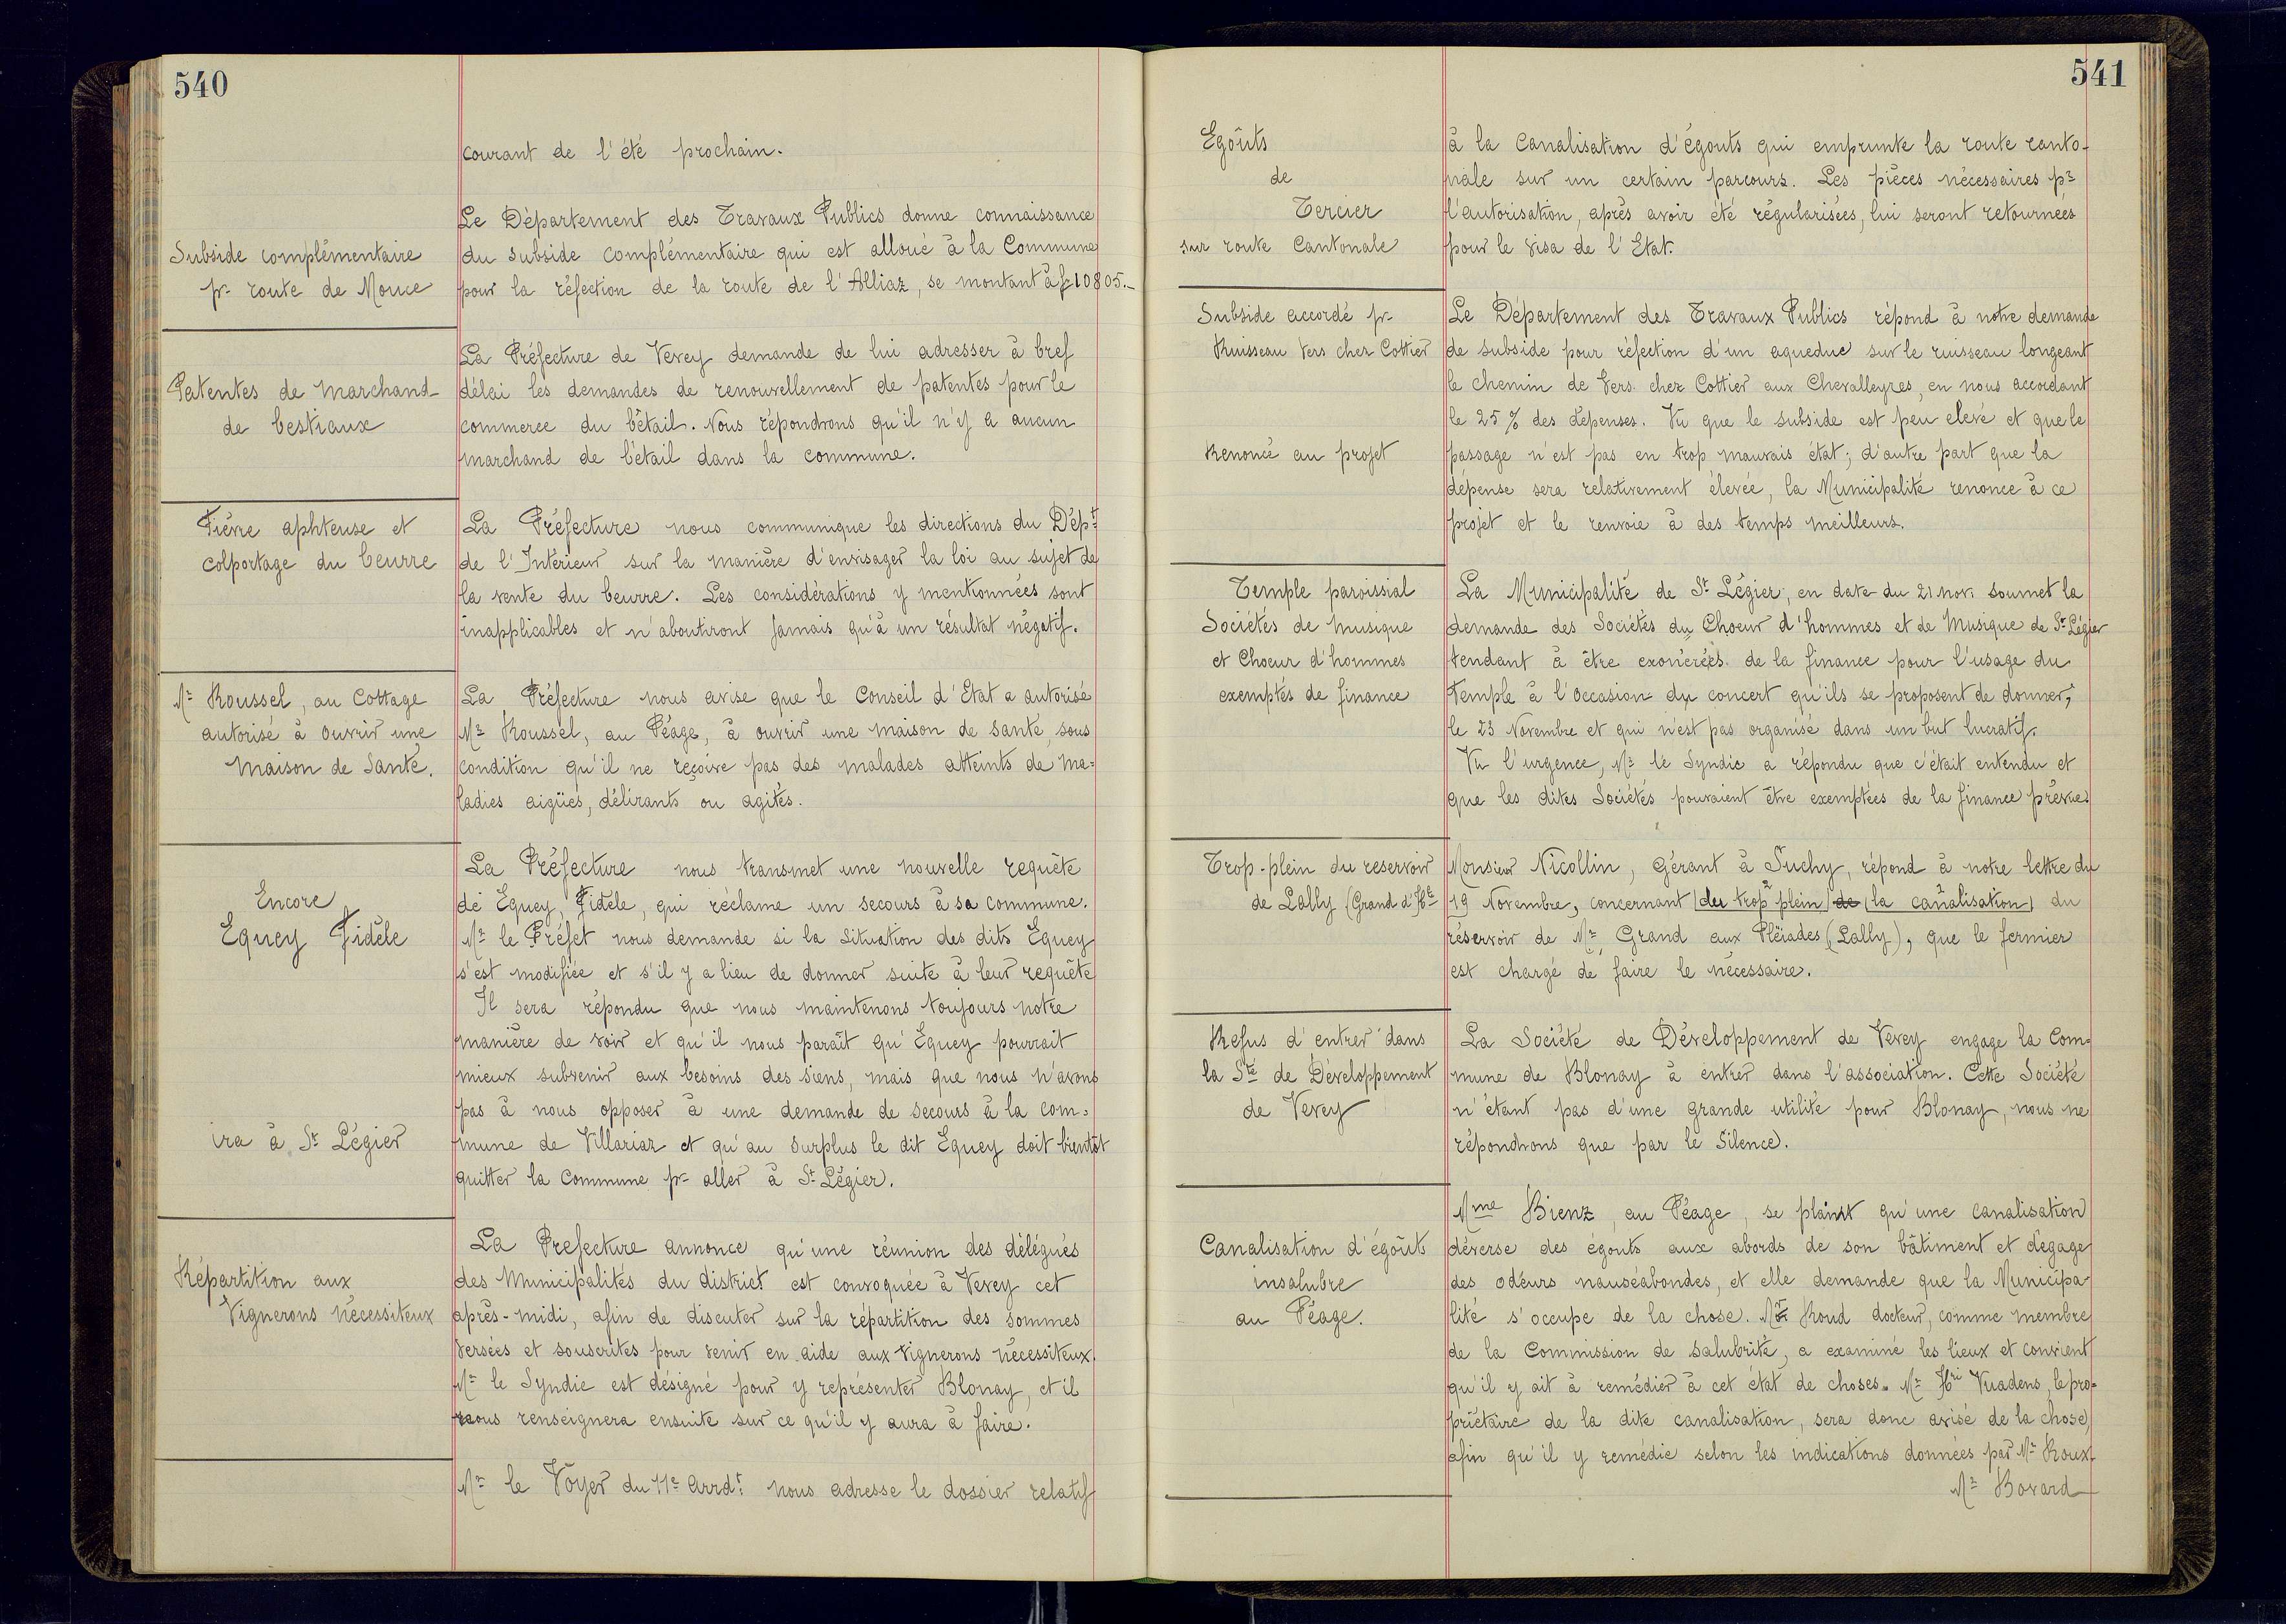 540
courant de l'été prochain.
Subside complémentaire
pr route de Mouce
Le Département des Travaux Publics donne connaissance
du subside complémentaire qui est alloué à la Commune
pour la réfection de la route de l'Alliaz, se montant à f 10805.-
Patentes de marchand
de bestiaux
La Préfecture de Vevey demande de lui adresser à bref
délai les demandes de renouvellement de patentes pour le
commerce du bétail. Nous répondrons qu'il n'y a aucun
marchand de bétail dans la commune.
Fièvre aphteuse et
colportage du beurre
La Préfecture nous communique les directions du Dépt
de l'Intérieur sur la manière d'envisager la loi au sujet de
la vente du beurre. Les considérations y mentionnées sont
inapplicables et n'aboutiront jamais qu'à un résultat négatif.
Mr Roussel, au Cottage
autorisé à ouvrir une
maison de Santé.
La Préfecture nous avise que le Conseil d'Etat a autorisé
Mr Roussel, au Péage, à ouvrir une maison de santé, sous
condition qu'il ne reçoive pas des malades atteints de ma=
ladies aigües, délirants ou agités.
Encore
Equey Fidèle
ira à St Légier
La Préfecture nous transmet une nouvelle requête
de Equey, Fidèle, qui réclame un secours à sa commune.
Mr le Préfet nous demande si la situation des dits Equey
s'est modifiée et s'il y a lieu de donner suite à leur requête
Il sera répondu que nous maintenons toujours notre
manière de voir et qu'il nous paraît qu'Equey pourrait
mieux subvenir aux besoins des siens, mais que nous n'avons
pas à nous opposer à une demande de secours à la com=
mune de Villariaz et qu'au surplus le dit Equey doit bientôt
quitter la Commune pr aller à St Légier.
Répartition aux
Vignerons nécessiteux
La Prefecture annonce qu'une réunion des délégués
des Municipalités du district est convoquée à Vevey cet
après-midi, afin de discuter sur la répartition des sommes
versées et souscrites pour venir en aide aux vignerons nécessiteux.
Mr le Syndic est désigné pour y représenter Blonay, et il
nous renseignera ensuite sur ce qu'il y aura à faire.
Mr le Voyer du 11e Arrdt nous adresse le dossier relatif
541
Egoûts
de
Tercier
sur route Cantonale
à la Canalisation d'égouts qui emprunte la route canto-
nale sur un certain parcours. Les pièces nécessaires pr
l'autorisation, après avoir été régularisées, lui seront retournées
pour le visa de l'Etat.
Subside accordé pr
Ruisseau Vers chez Cottier
Renoncé au projet
Le Département des Travaux Publics répond à notre demande
de subside pour réfection d'un aqueduc sur le ruisseau longeant
le chemin de Vers chez Cottier aux Chevalleyres, en nous accordant
le 25 % des dépenses. Vu que le subside est peu elevé et que le
passage n'est pas en trop mauvais état; d'autre part que la
dépense sera relativement élevée, la Municipalité renonce à ce
projet et le renvoie à des temps meilleurs.
Temple paroissial
Sociétés de musique
et Choeur d'hommes
exemptés de finance
La Municipalité de St Légier, en date du 21 nov. soumet la
demande des Sociétés du Choeur d'hommes et de Musique de St Légier
tendant à être exonérées de la finance pour l'usage du
Temple à l'occasion du concert qu'ils se proposent de donner,
le 23 Novembre et qui n'est pas organisé dans un but lucratif.
Vu l'urgence, Mr le Syndic a répondu que c'était entendu et
que les dites Sociétés pouvaient être exemptées de la finance prévue.
Trop-plein du reservoir
de Lally (Grand d'Hte
Monsieur Nicollin, Gérant à Suchy, répond à notre lettre du
19 Novembre, concernant du trop plein de la canalisation du
réservoir de Mr Grand aux Pléiades (Lally), que le fermier
est chargé de faire le nécessaire.
Refus d'entrer dans
la Sté de Développement
de Vevey
La Société de Développement de Vevey engage la Com=
mune de Blonay à entrer dans l'association. Cette Société
n'étant pas d'une grande utilité pour Blonay, nous ne
répondrons que par le Silence.
Canalisation d'égoûts
insalubre
au Péage.
Mme Bienz, au Péage, se plaint qu'une canalisation
déverse des égouts aux abords de son bâtiment et dégage
des odeurs nauséabondes, et elle demande que la Municipa
lité s'occupe de la chose. Mr Roud docteur, comme membre
de la Commission de salubrité, a examiné les lieux et convient
qu'il y ait à remédier à cet état de choses. Mr Hri Vuadens, le pro=
priétaire de la dite canalisation, sera donc avisé de la chose,
afin qu'il y remédie selon les indications données par Mr Roux.
Mr Bovard